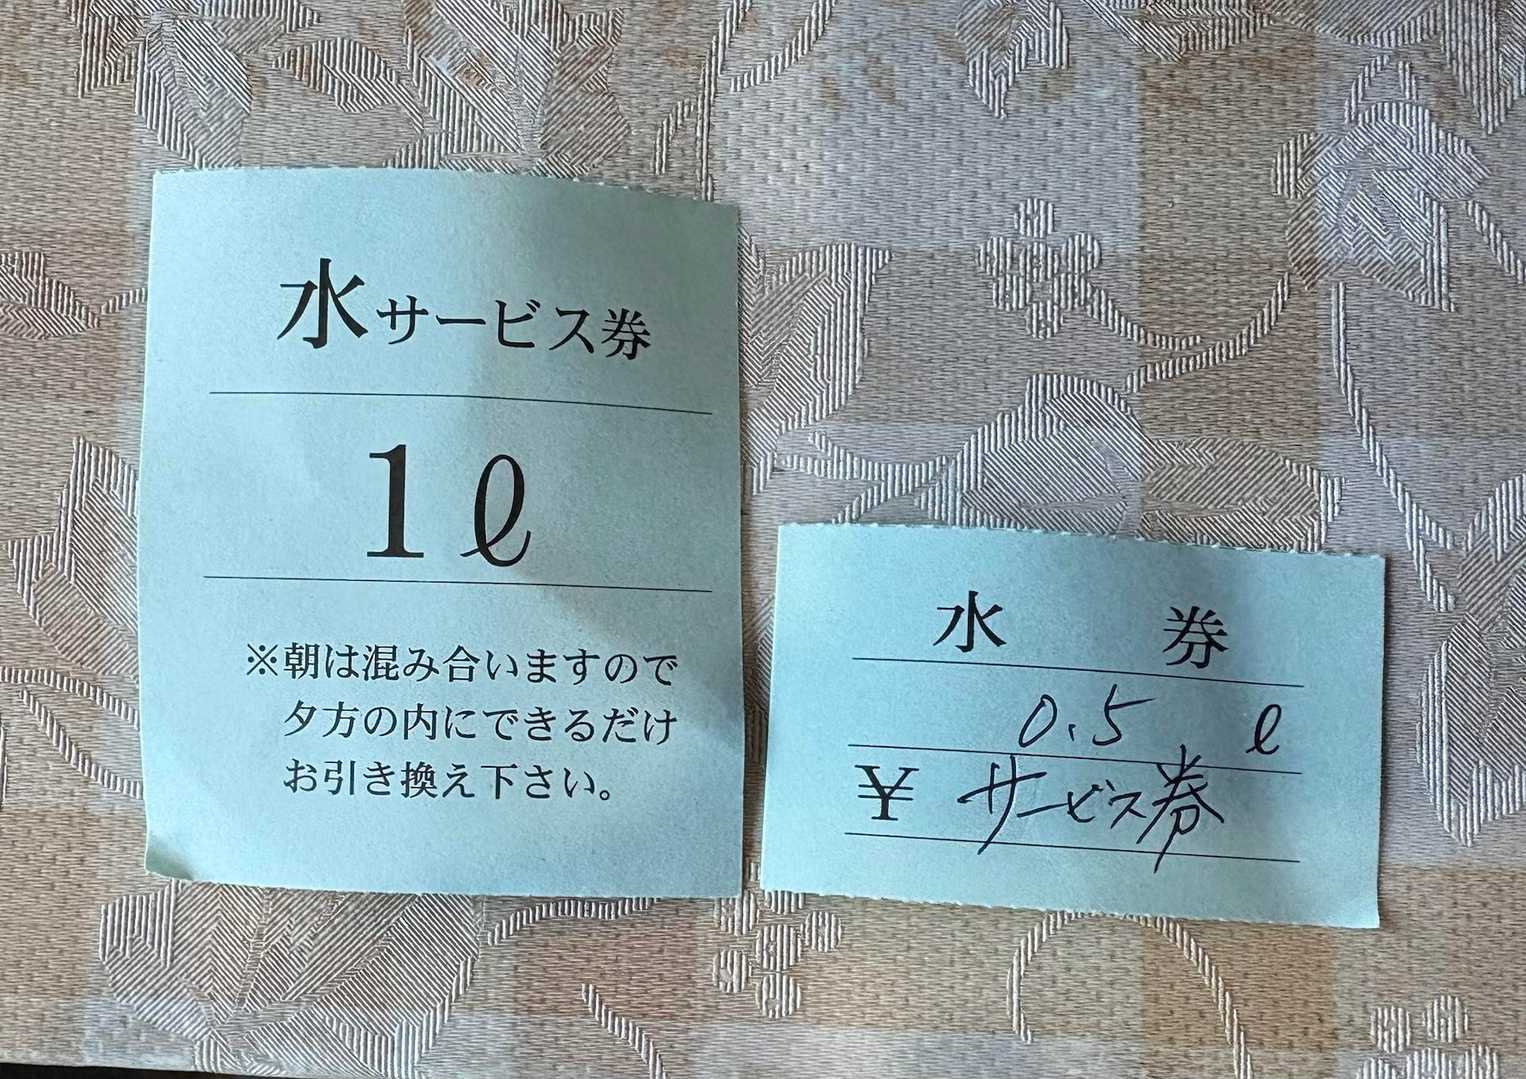 水サービス券
1ℓ
※朝は混み合いますので
夕方の内にできるだけ
お引き換え下さい。
水 券
0.5 ℓ
¥ サービス券